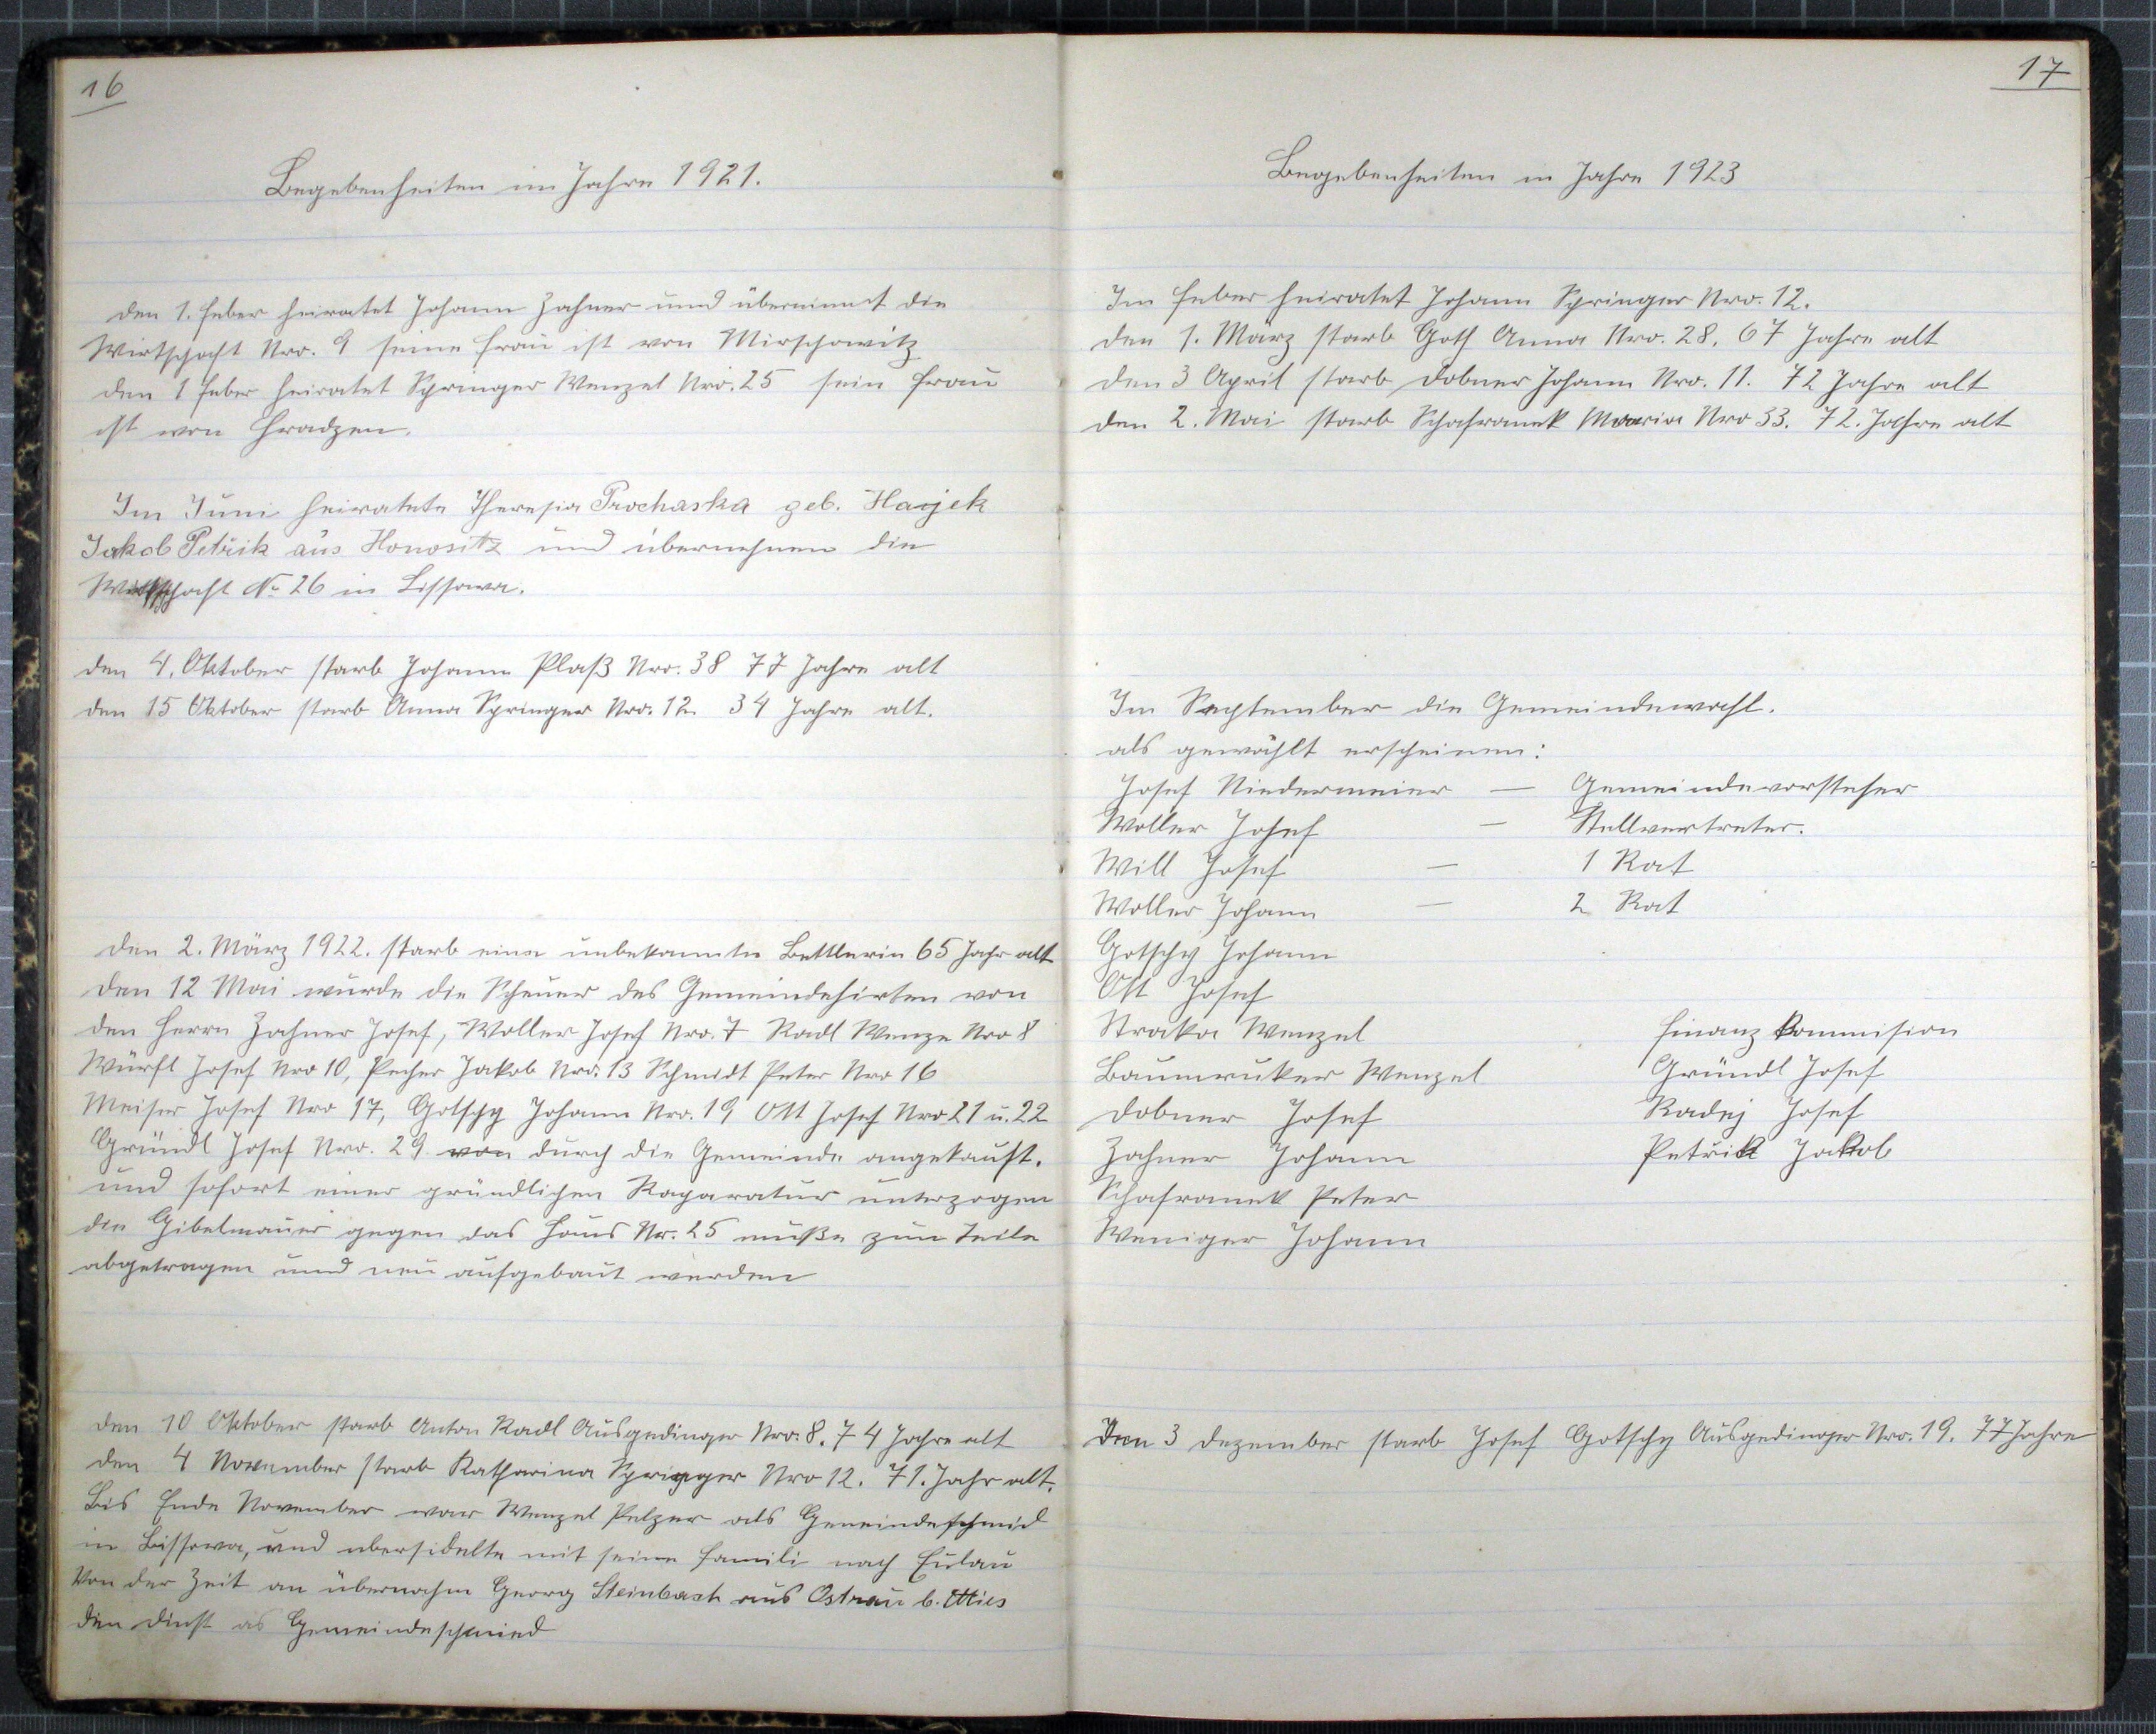 16
Begebenheiten im Jahre 1921.
den 1. Feber heiratet Johann Zahner und übernimmt die
Wirtschaft Nro. 9 seine Frau ist von Mirschowitz
den 1 Feber heiratet Springer Wenzel Nro. 25 sein Frau
ist von Hradzen.
Im Juni heiratete Theresia Prochaska geb. Hasjek
Jakob Petřik aus Honositz und übernehmen die
Wirtschaft № 26 in Lissowa.
den 4. Oktober starb Johann Plaß Nro. 38 77 Jahre alt
den 15 Oktober starb Anna Springer Nro. 12. 34 Jahre alt.
den 2. März 1922. starb eine unbekannte Bettlerin 65 Jahr alt
den 12 Mai wurde die Scheuer des Gemeindehirten von
den Herrn Zahner Josef, Woller Josef Nro. 7 Radl Wenze Nro 8
Würfl Josef Nro 10, Pecher Jakob Nro. 13 Schmidt Peter Nro 16
Meiser Josef Nro 17, Gotschy Johann Nro. 19 Ott Josef Nro 21 u. 22
Gründl Josef Nro. 29 von durch die Gemeinde angekauft.
und sofort einer gründlichen Raparatur unterzogen
die Gibelmauer gegen das Haus Nr. 25 mußte zum Teile
abgetragen und neu aufgebaut werden
den 10 Oktober starb Anton Radl Ausgedinger Nro. 8. 74 Jahre alt
den 4 November starb Katharina Springer Nro 12. 71. Jahr alt.
Bis Ende November war Wenzel Pelzer als Gemeindeschmid
in Lissowa, und ubersidelte mit seine Famili nach Eulau
Von der Zeit an übernahm Georg Steinbach aus Ostrau b. Mies
den Dinst as Gemeindeschmied
17
Begebenheiten in Jahre 1923
Im Feber heiratet Johann Springer Nro. 12.
den 1. März starb Goth Anna Nro. 28. 67 Jahre alt
den 3 April starb Dobner Johann Nro. 11. 72 Jahre alt
den 2. Mai starb Schafranek Maria Nro 33. 72. Jahre alt
Im September die Gemeindewahl.
als gewählt erscheinen:
Josef Niedermeier — Gemeindevorsteher
Woller Josef — Stellvertreter.
Will Josef — 1 Rat
Woller Johann — 2 Rat
Gotschy Johann
Ott Josef
Straka Wenzel Finanz Kommision
Baumruker Wenzel Gründl Josef
Dobner Josef Radej Josef
Zahner Johann Petřik Jakob
Schafranek Peter
Weniger Johann
Den 3 Dezember starb Josef Gotschy Ausgedinger Nro. 19. 77 Jahre